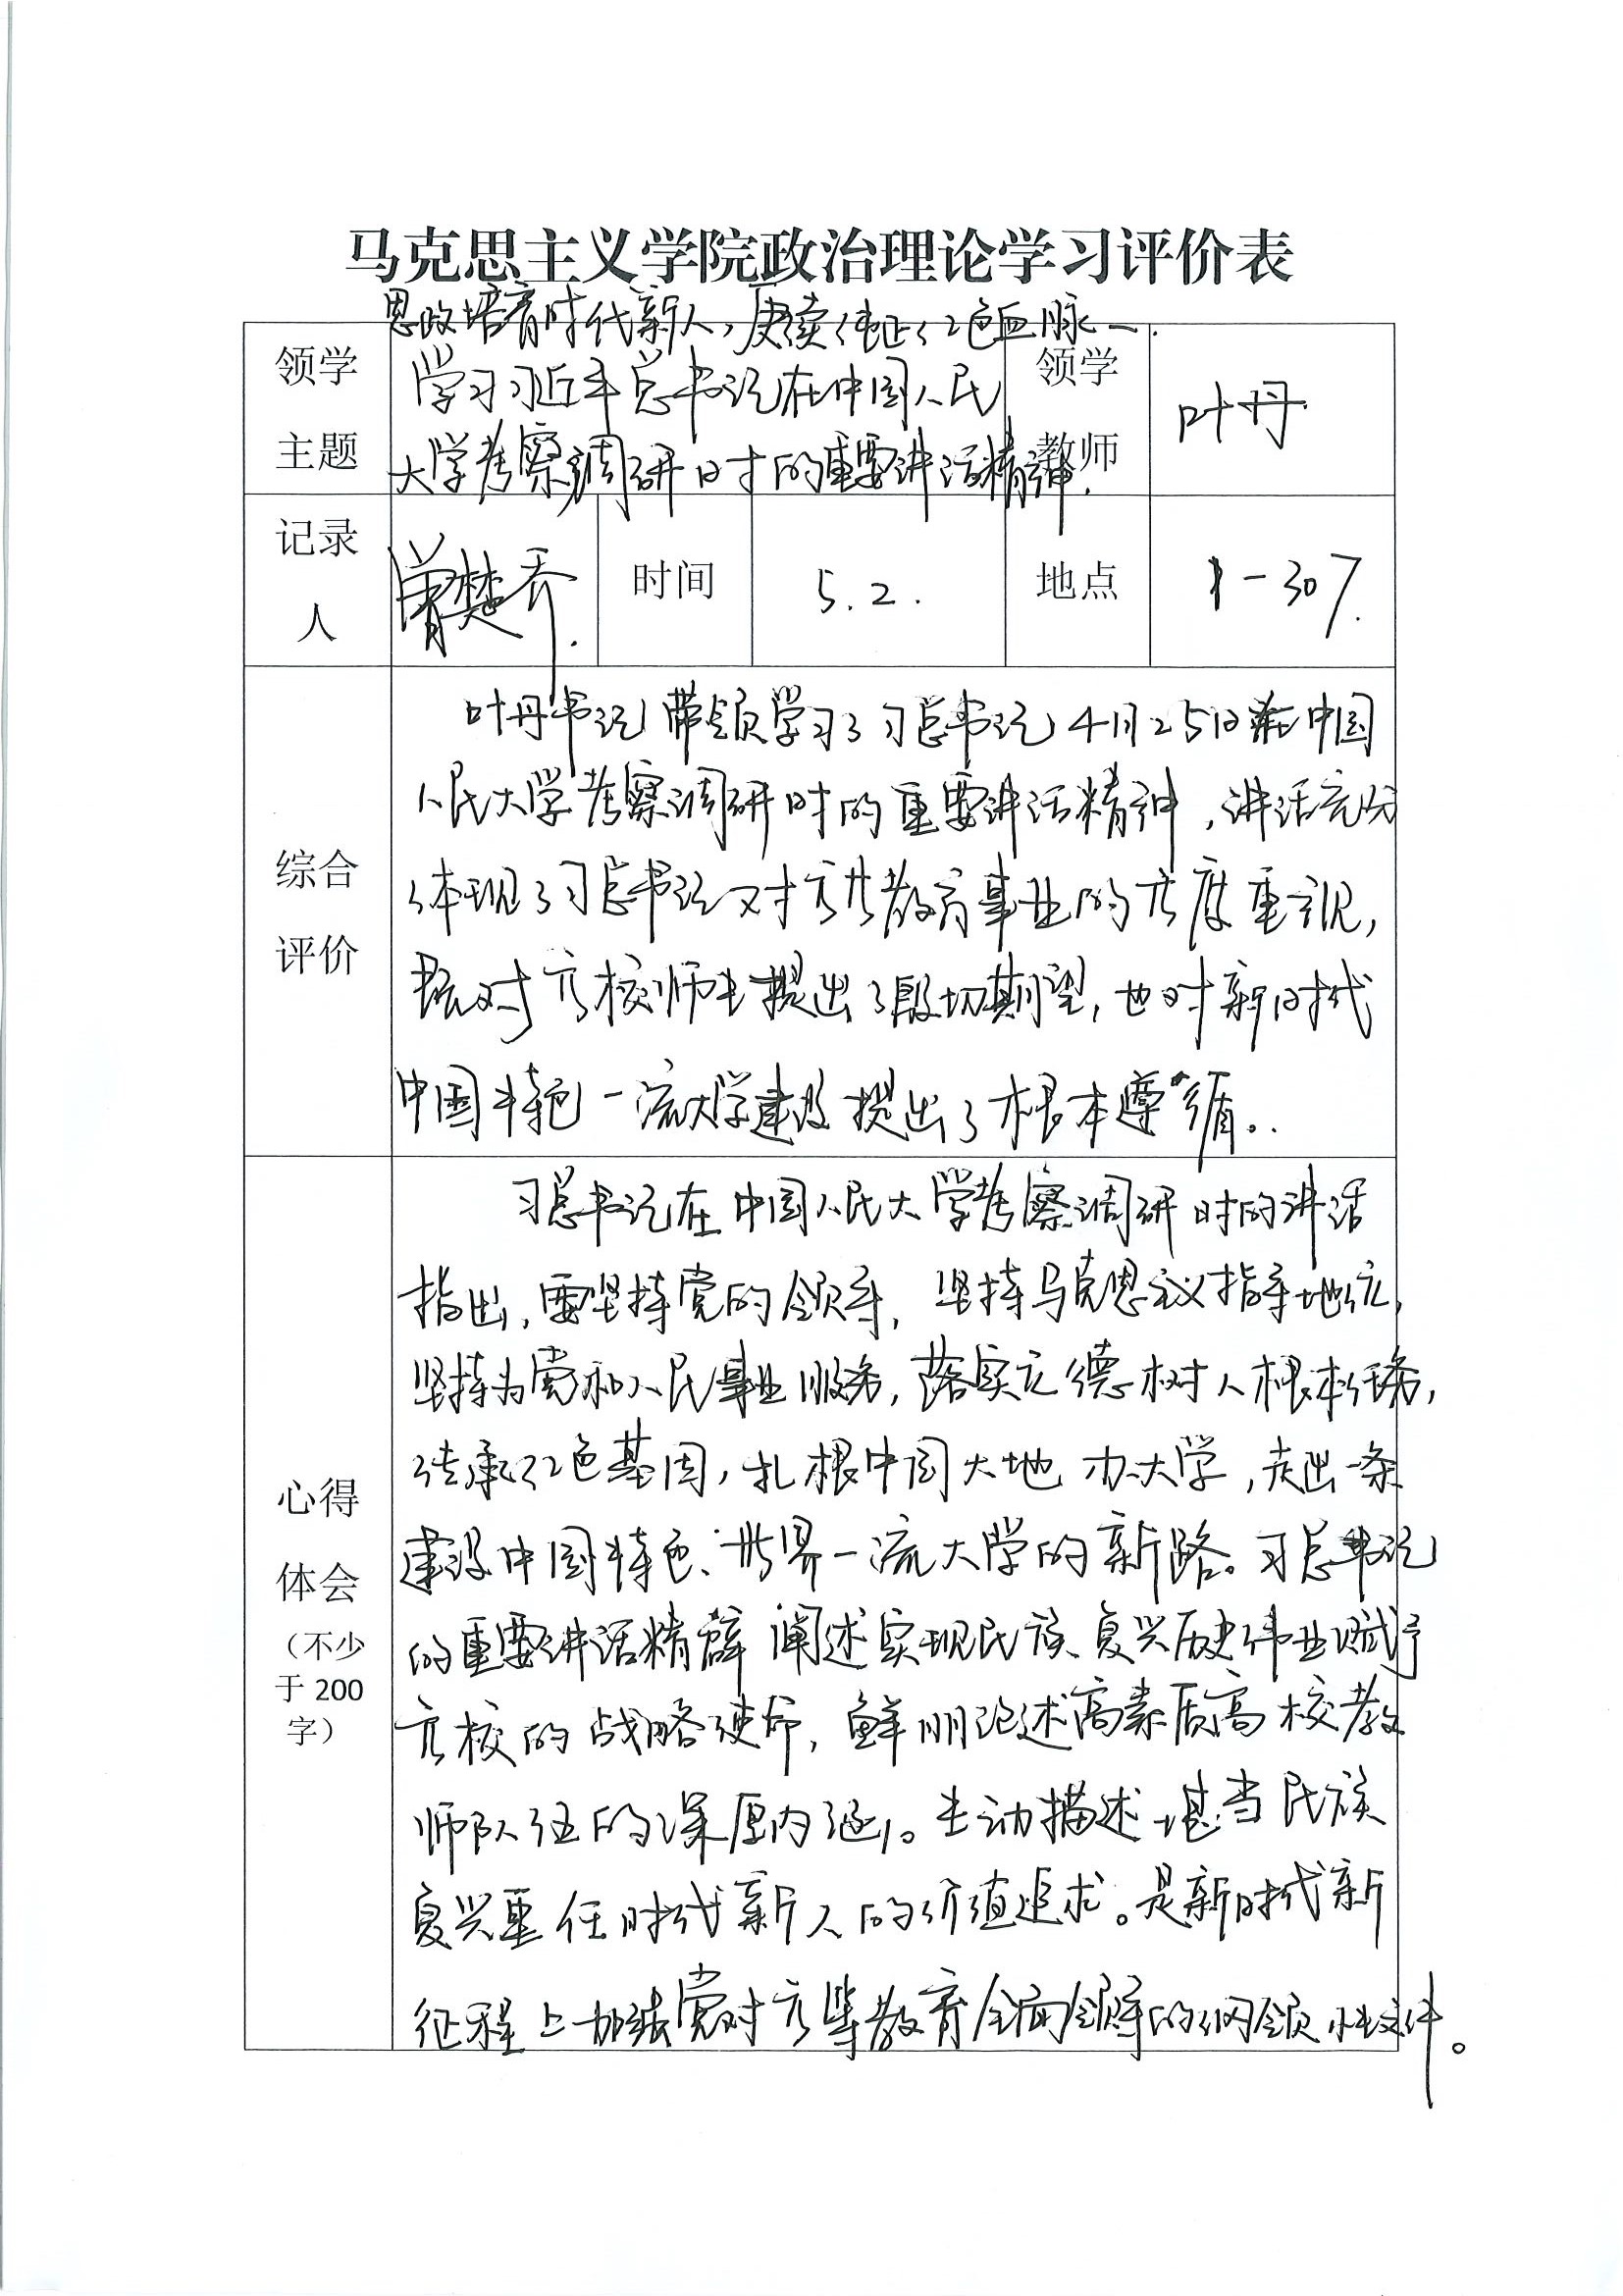 马克思主义学院政治理论学习评价表
领学
主题
思政培育时代新人，赓续传承红色血脉—
学习习近平总书记在中国人民
大学考察调研时的重要讲话精神.
领学
教师
叶丹
记录
人
曾楚乔.
时间
5.2.
地点
1-307.
综合
评价
叶丹书记带领学习了习总书记4月25日在中国
人民大学考察调研时的重要讲话精神，讲话充分
体现了习总书记对高等教育事业的高度重视，
对高校师生提出了殷切期望，也对新时代
中国特色一流大学建设提出了根本遵循。
心得
体会
（不少
于200
字）
习总书记在中国人民大学考察调研时的讲话
指出，要坚持党的领导，坚持马克思主义指导地位，
坚持为党和人民事业服务，落实立德树人根本任务，
传承红色基因，扎根中国大地办大学，走出一条
建设中国特色、世界一流大学的新路。习总书记
的重要讲话精辟阐述实现民族复兴历史伟业赋予
高校的战略使命，鲜明论述高素质高校教
师队伍的深厚内涵。生动描述堪当民族
复兴重任时代新人的价值追求。是新时代新
征程上加强党对高等教育全面领导的纲领性文件。